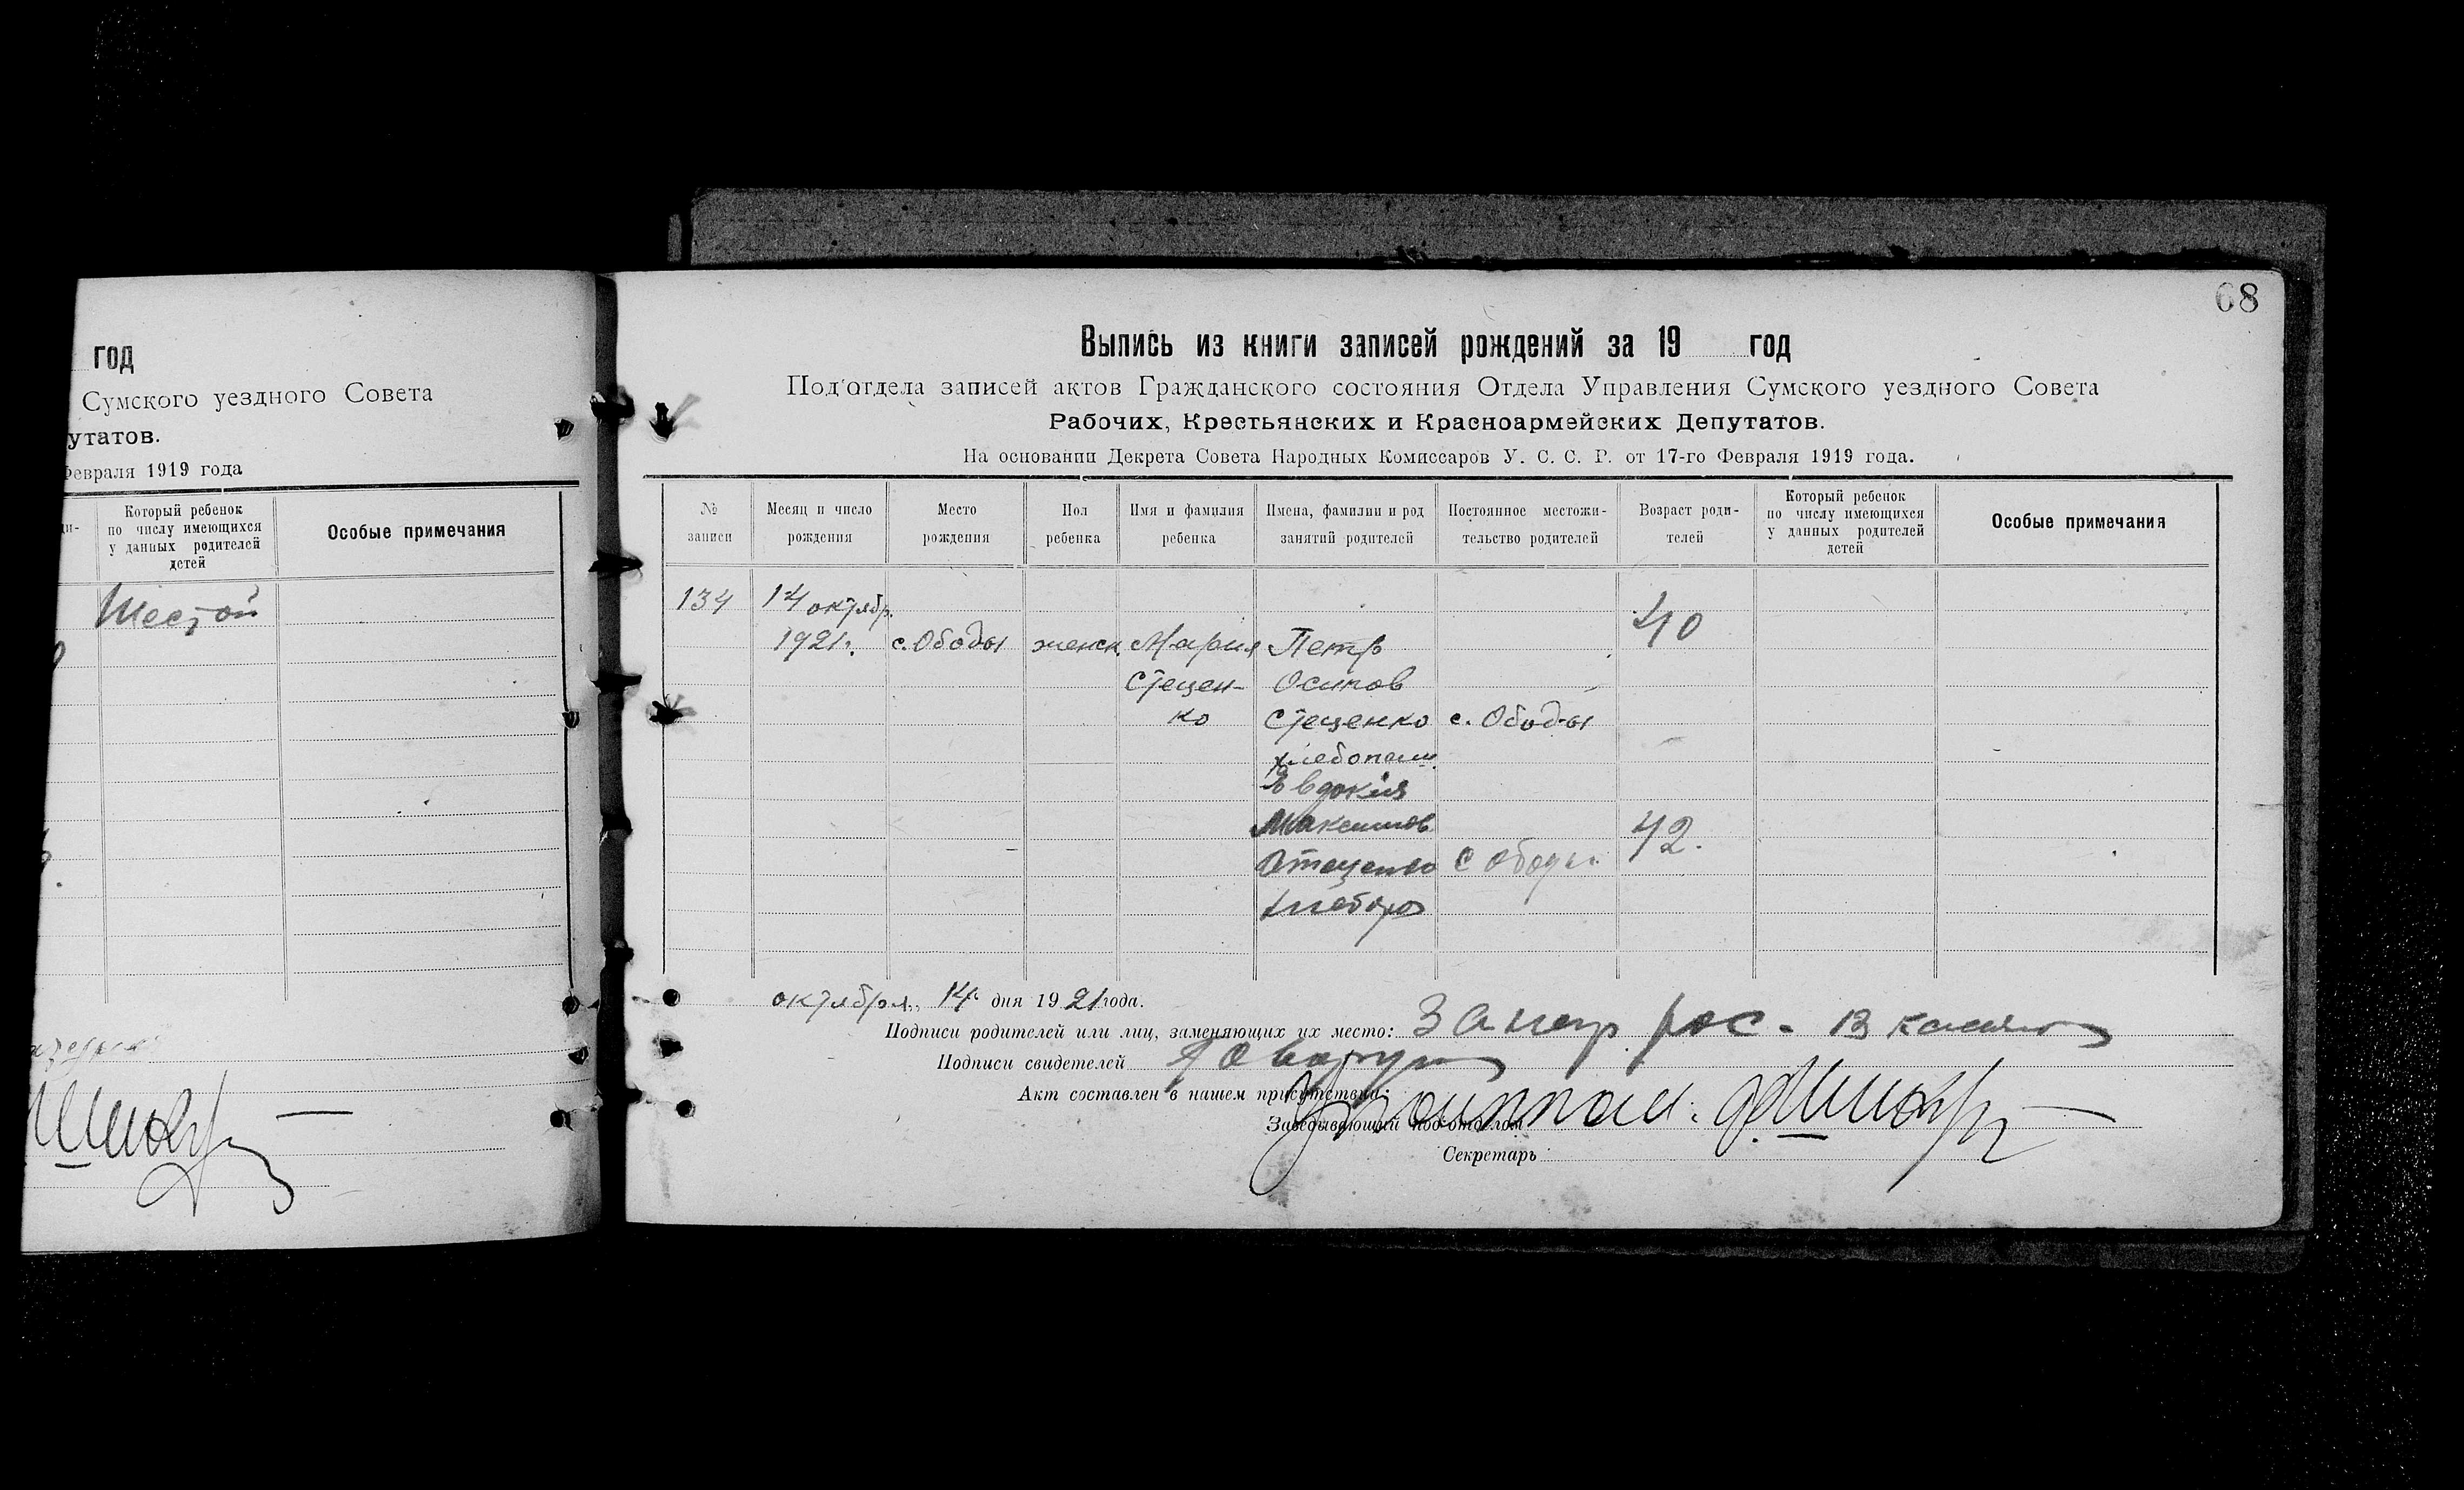 год
Сумского уездного Совета
утатов.
Февраля 1919 года
ди-
Который ребенок
по числу имеющихся
у данных родителей
детей
Особые примечания
Шестой
68
Выпись из книги записей рождений за 19 год
Под'отдела записей актов Гражданского состояния Отдела Управления Сумского уездного Совета
Рабочих, Крестьянских и Красноармейских Депутатов.
На основании Декрета Совета Народных Комиссаров У. С. С. Р. от 17-го Февраля 1919 года.
№ записи
Месяц и число рождения
Место рождения
Пол ребенка
Имя и фамилия ребенка
Имена, фамилии и род занятий родителей
Постоянное местожи-
тельство родителей
Возраст роди-
телей
Который ребенок
по числу имеющихся
у данных родителей
детей
Особые примечания
134 14 октябр. 40
1921г. с. Ободы женск. Мария Петр
Стецен- Осипов
ко Стеценко с. Ободы
хлебопаш.
Евдокия
Максимов 42.
Стеценко с Ободы
хлебороб
октября 14 дня 1921 года.
Подписи родителей или лиц, заменяющих их место: За негр. рос.
Подписи свидетелей
Акт составлен в нашем присутствии:
Заведывающий под'отделом
Секретарь